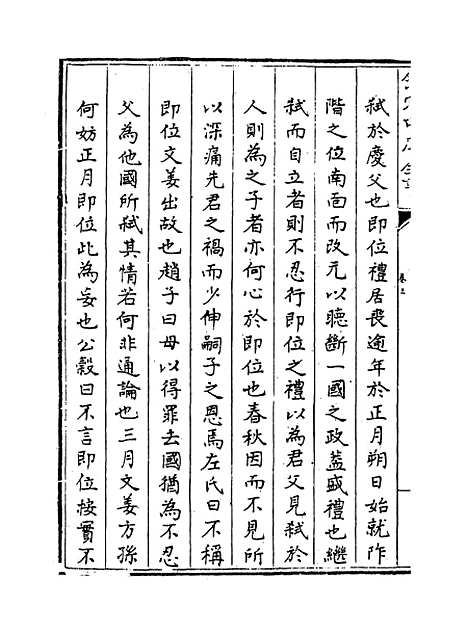 弑於慶父也即位禮居喪逾年於正月朔日始就阼
階之位南面而改元以聽斷一國之政蓋盛禮也繼
弑而自立者則不忍行即位之禮以為君父見弑於
人則為之子者亦何心於即位也春秋因而不見所
以深痛先君之禍而少伸嗣子之恩焉左氏曰不稱
即位文姜出故也趙子曰母以得罪去國猶為不忍
父為他國所弑其情若何非通論也三月文姜方孫
何妨正月即位此為妄也公穀曰不言即位按實不